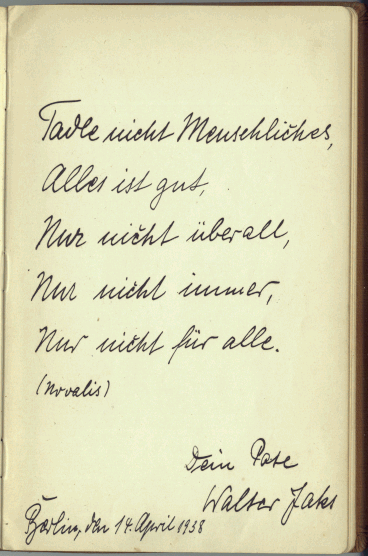 Tadle nicht Menschliches,
Alles ist gut,
Nur nicht überall,
Nur nicht immer,
Nur nicht für alle.
(Novalis)
Dein Pate
Walter Jaks
Berlin, den 14. April 1938